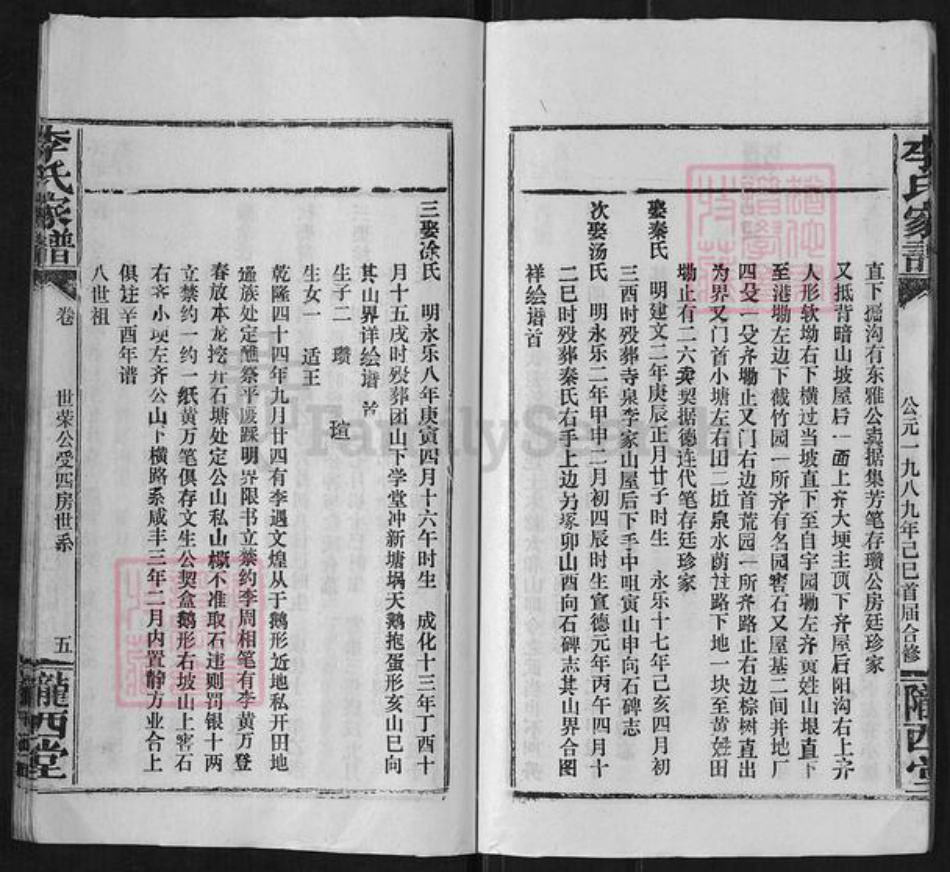 李氏家譜
公元一九八九年己巳首届合修
隴西堂
直下掘沟有东雅公卖据集芳笔存瓒公房廷珍家
又抵背暗山坡屋后一面上齐大埂主顶下齐屋后阳沟右上齐
人形软坳右下横过当坡直下至自宇园墈左齐黄姓山垠直下
至港墈左边下截竹园一所齐有名园窖石又屋基二间并地厂
四殳一殳齐墈止又门右边首荒园一所齐路止右边棕树直出
为界又门首小塘左右田二坵泉水荫注路下地一块至黄姓田
墈止有二六卖契据德连代笔存廷珍家
娶秦氏 明建文二年庚辰正月廿子时生 永乐十七年己亥四月初
三酉时殁葬寺泉李家山屋后下手中咀寅山申向石碑志
次娶汤氏 明永乐二年甲申二月初四辰时生宣德元年丙午四月十
二巳时殁葬秦氏右手上边为塚卯山酉向石碑志其山界合图
祥绘谱首
三娶凃氏 明永乐八年庚寅四月十六午时生 成化十三年丁酉十
月十五戌时殁葬团山下学堂冲新塘埚天鹅抱蛋形亥山巳向
其山界详绘谱首
生子二 瓒 瑄
生女一 适王
乾隆四十四年九月廿四有李遇文煌从于鹅形近地私开田地
通族处定醮祭平复踩明界限书立禁约李周相笔有李黄万登
春放本龙挖井石塘处定公山私山概不准取石违则罚银十两
立禁约一约一纸黄万笔俱存文生公契盒鹅形右坡山上窖石
右齐小埂左齐公山下横路系咸丰三年二月内置静方业合上
俱注辛酉年谱
八世祖
李氏家譜
卷
世荣公受四房世系
五
隴西堂